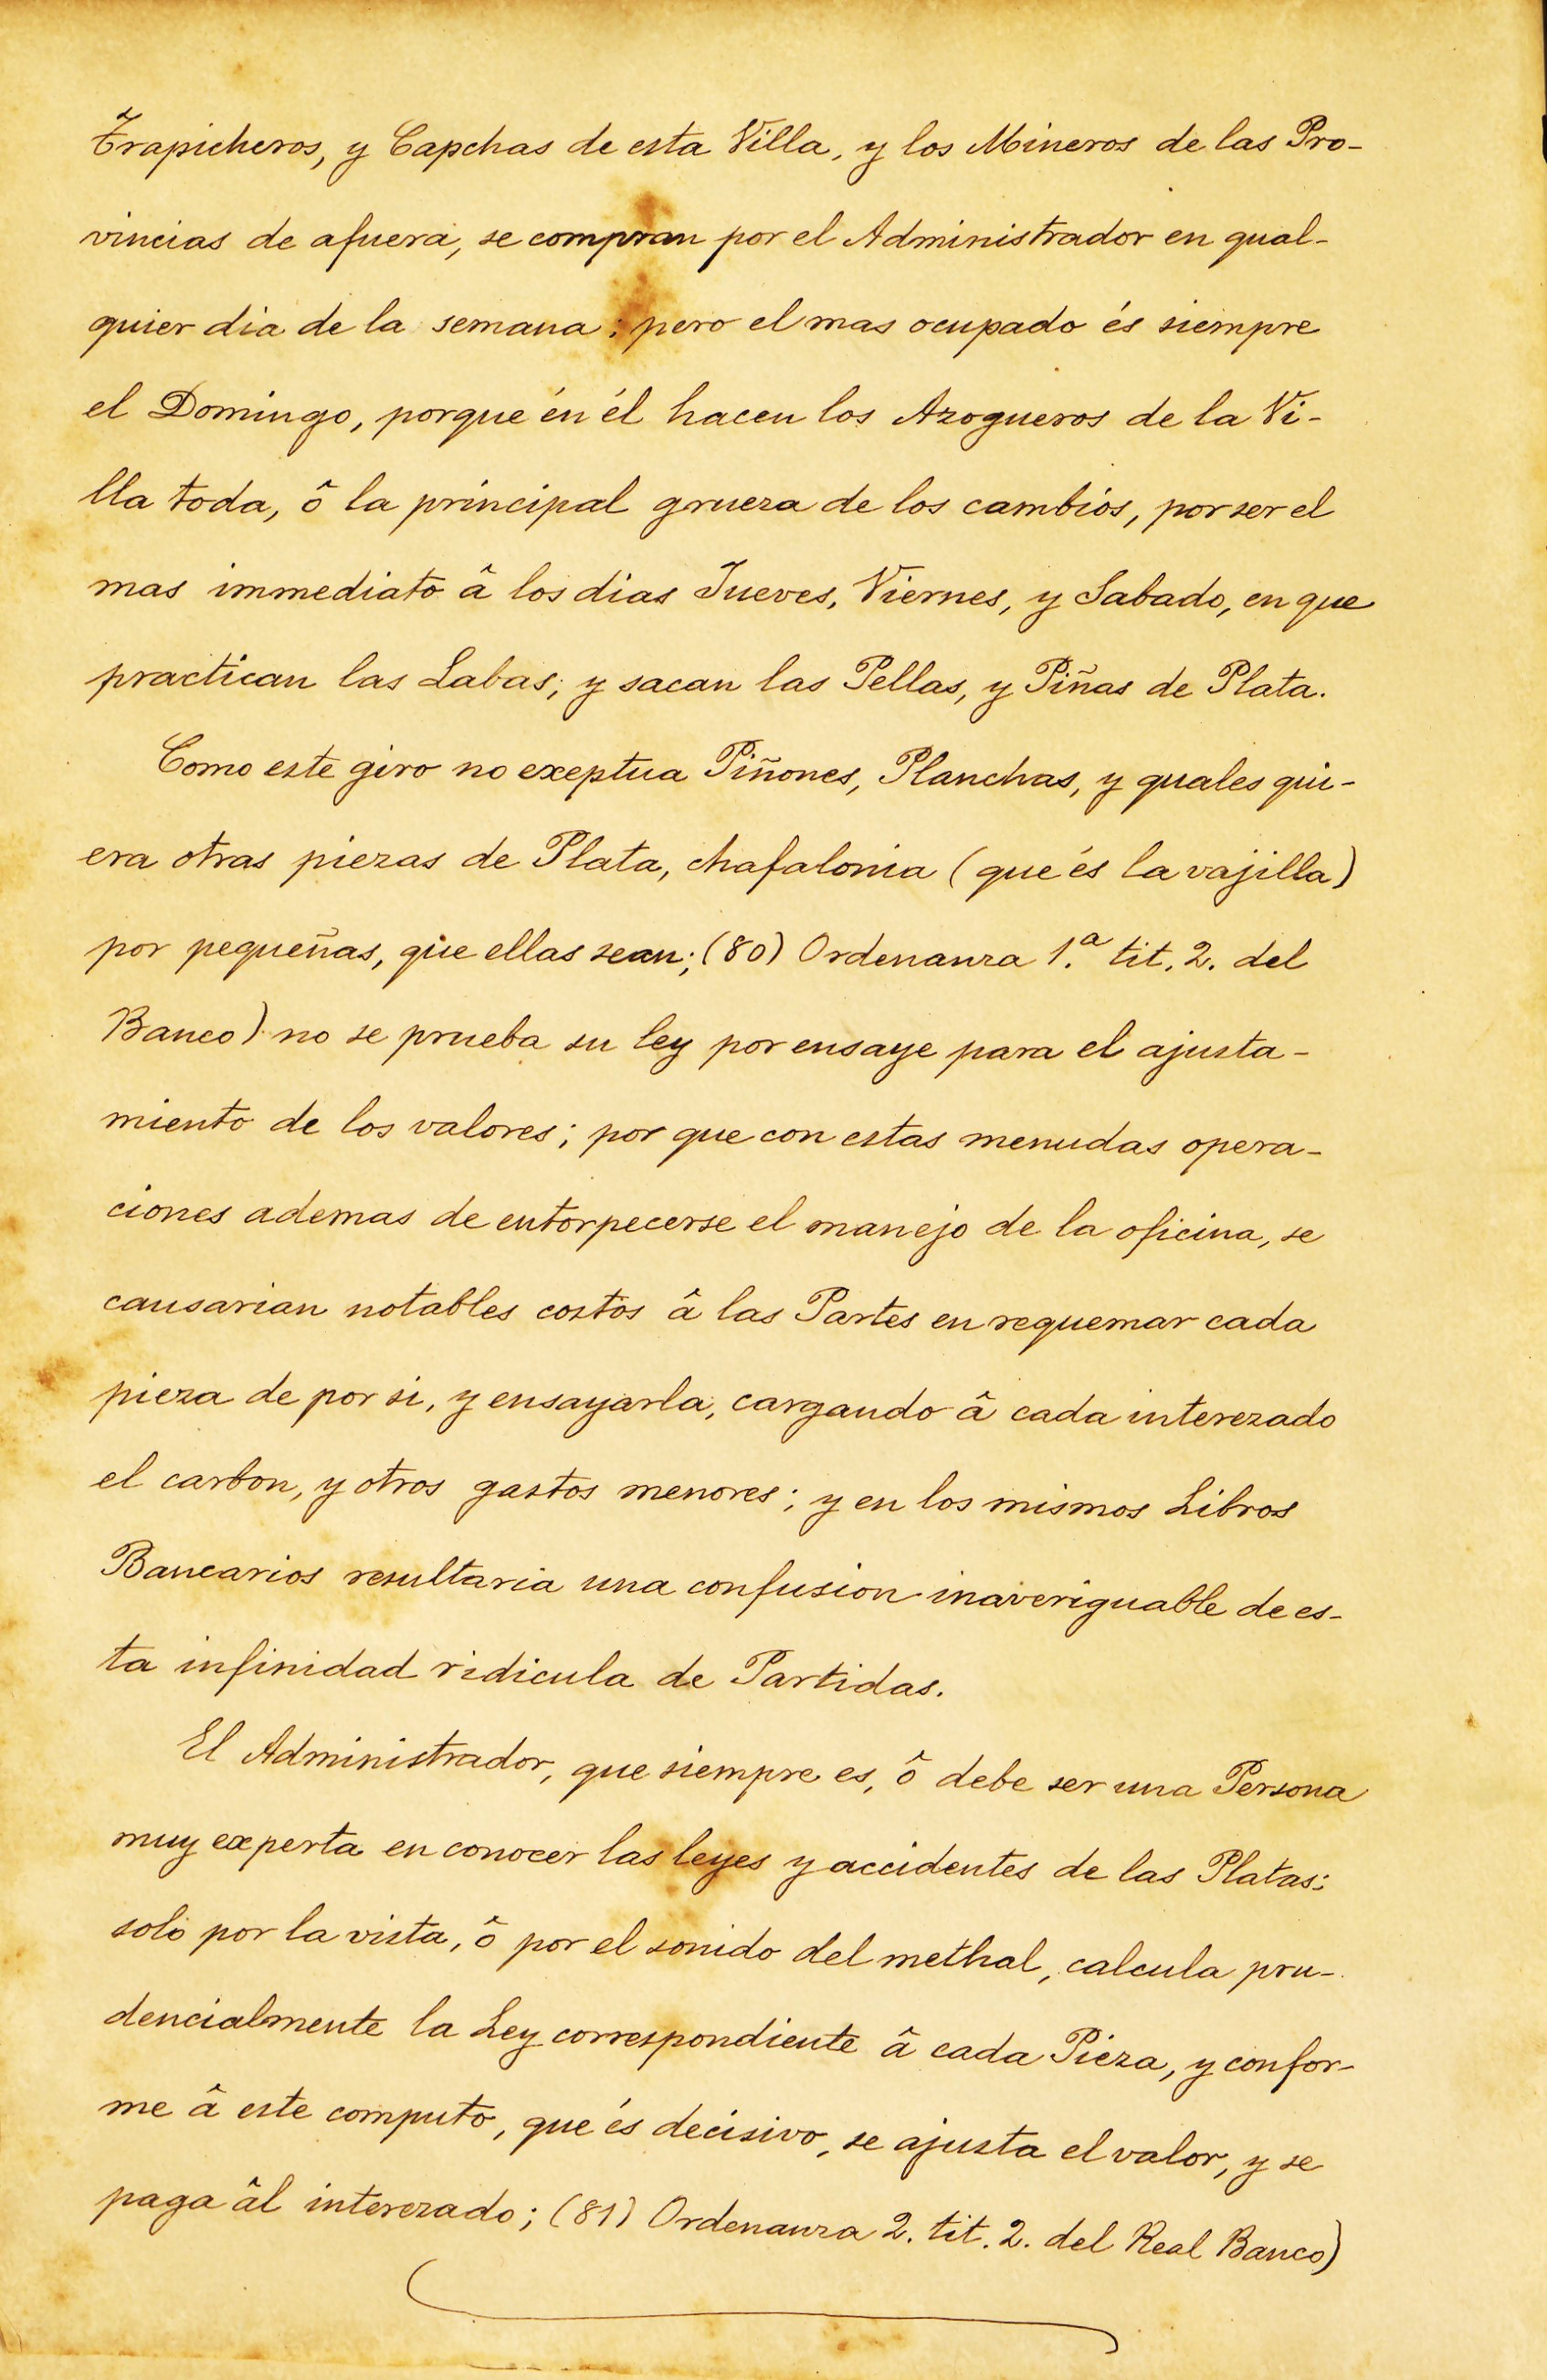 Trapicheros, y Capchas de esta Villa, y los Mineros de las Pro-
vincias de afuera, se compran por el Administrador en qual-
quier dia de la semana; pero el mas ocupado és siempre
el Domingo, porque én él hacen los Azogueros de la Vi-
lla toda, ô la principal grueza de los cambios, por ser el
mas immediato â los dias Jueves, Viernes, y Sabado, en que
practican las Labas; y sacan las Pellas, y Piñas de Plata.
Como este giro no exeptua Piñones, Planchas, y quales qui-
era otras piezas de Plata, chafalonia (que és la vajilla)
por pequeñas, que ellas sean; (80) Ordenanza 1.ª tit. 2. del
Banco) no se prueba su ley por ensaye para el ajusta-
miento de los valores; por que con estas menudas opera-
ciones ademas de entorpecerse el manejo de la oficina, se
causarian notables costos â las Partes en requemar cada
pieza de por si, y ensayarla, cargando â cada interezado
el carbon, y otros gastos menores; y en los mismos Libros
Bancarios resultaria una confusion inaveriguable de es-
ta infinidad ridicula de Partidas.
El Administrador, que siempre es, ô debe ser una Persona
muy experta en conocer las leyes y accidentes de las Platas;
solo por la vista, ô por el sonido del methal, calcula pru-
dencialmente la Ley correspondiente â cada Pieza, y confor-
me â este computo, que és decisivo, se ajusta el valor, y se
paga âl interezado; (81) Ordenanza 2. tit. 2. del Real Banco)